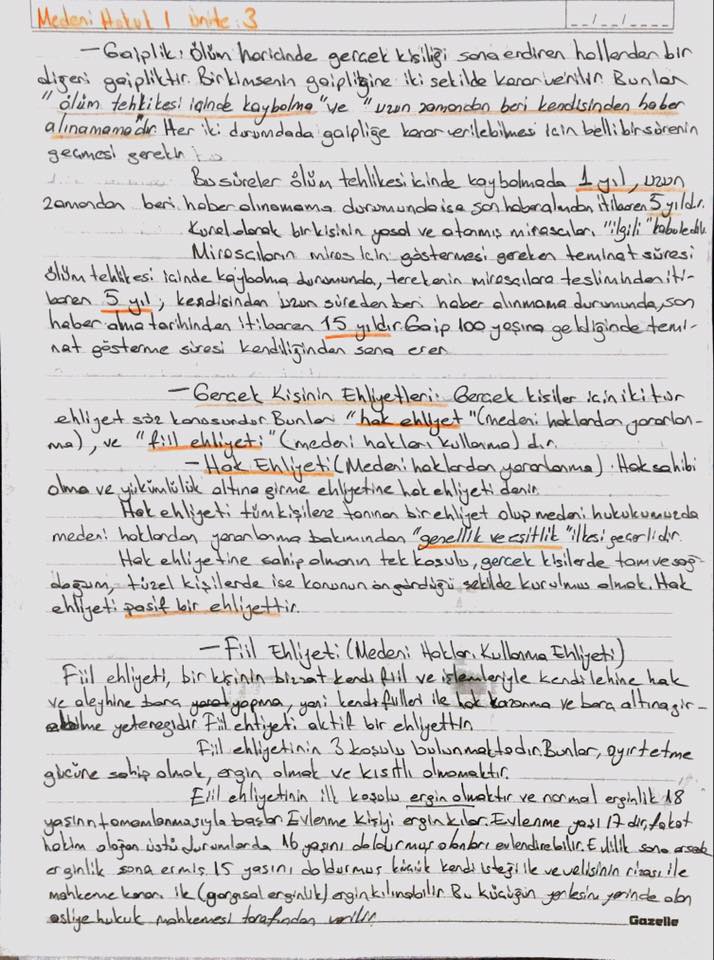 Medeni Hukuk 1 ünite: 3
__/__/__
— Gaiplik: Ölüm haricinde gerçek kişiliği sona erdiren hallerden bir
diğeri gaipliktir. Bir kimsenin gaipliğine iki şekilde karar verilir. Bunlar
"ölüm tehlikesi içinde kaybolma" ve "uzun zamandan beri kendisinden haber
alınamama"dır. Her iki durumdada gaipliğe karar verilebilmesi için belli bir sürenin
geçmesi gerekir.
Bu süreler ölüm tehlikesi içinde kaybolmada 1 yıl, uzun
zamandan beri haber alınamama durumunda ise son haber alımdan itibaren 5 yıldır.
Kural olarak bir kişinin yasal ve atanmış mirasçıları "ilgili" kabul edilir.
Mirasçıların miras için göstermesi gereken teminat süresi
ölüm tehlikesi içinde kaybolma durumunda, terekenin mirasçılara tesliminden iti-
baren 5 yıl, kendisinden uzun süreden beri haber alınmama durumunda, son
haber alma tarihinden itibaren 15 yıldır. Gaip 100 yaşına geldiğinde temi-
nat gösterme süresi kendiliğinden sona erer.
— Gerçek Kişinin Ehliyetleri: Gerçek kişiler için iki tür
ehliyet söz konusudur. Bunlar "hak ehliyet" (medeni haklardan yararlan-
ma), ve "fiil ehliyeti" (medeni hakları kullanma) dır.
— Hak Ehliyeti (Medeni haklardan yararlanma). Hak sahibi
olma ve yükümlülük altına girme ehliyetine hak ehliyeti denir.
Hak ehliyeti tüm kişilere tanınan bir ehliyet olup medeni hukukumuzda
medeni haklardan yararlanma bakımından "genellik ve eşitlik" ilkesi geçerlidir.
Hak ehliyetine sahip olmanın tek koşulu, gerçek kişilerde tam ve sağ
doğum, tüzel kişilerde ise kanunun öngördüğü şekilde kurulmuş olmak. Hak
ehliyeti pasif bir ehliyettir.
— Fiil Ehliyeti (Medeni Hakları Kullanma Ehliyeti)
Fiil ehliyeti, bir kişinin bizzat kendi fiil ve işlemleriyle kendi lehine hak
ve aleyhine borç yaratyapma, yani kendi fiilleri ile hak kazanma ve borç altına gir-
ebilme yeteneğidir. Fiil ehliyeti aktif bir ehliyettir.
Fiil ehliyetinin 3 koşulu bulunmaktadır. Bunlar, ayırt etme
gücüne sahip olmak, ergin olmak ve kısıtlı olmamaktır.
Fiil ehliyetinin ilk koşulu ergin olmaktır ve normal erginlik 18
yaşının tamamlanmasıyla başlar. Evlenme kişiyi ergin kılar. Evlenme yaşı 17 dir, fakat
hakim olağan üstü durumlarda 16 yaşını doldurmuş olanları evlendirebilir.
erginlik sona ermiş 15 yaşını doldurmuş küçük kendi isteği ile ve velisinin rızası ile
mahkeme kararı ile (yargısal erginlik) ergin kılınabilir. Bu küçüğün yerleşim yerinde olan
asliye hukuk mahkemesi tarafından verilir.
Gazelle